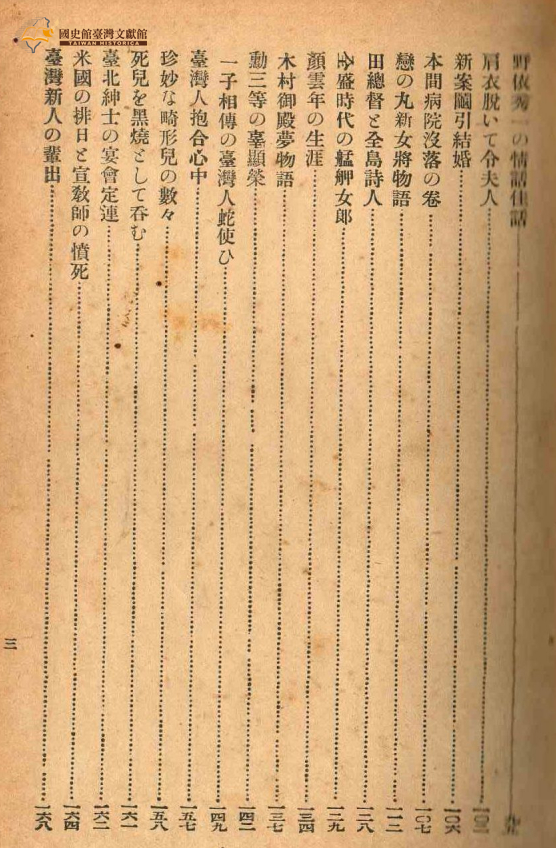 國史館臺灣文獻館
TAIWAN HISTORICA
野依秀一の情話佳話
肩衣脱いで令夫人……一〇三
新案圖引結婚……一〇六
本間病院沒落の卷……一〇七
戀の丸新女將物語……一一三
田總督と全島詩人……一二八
全盛時代の艋舺女郎……一二九
顏雲年の生涯……一三四
木村御殿夢物語……一三七
勳三等の辜顯榮……一四二
一子相傳の臺灣人蛇使ひ……一四九
臺灣人抱合心中……一五七
珍妙な畸形兒の數々……一五八
死兒を黑燒として呑む……一六一
臺北紳士の宴會定連……一六二
米國の排日と宣敎師の憤死……一六四
臺灣新人の輩出……一六八
三